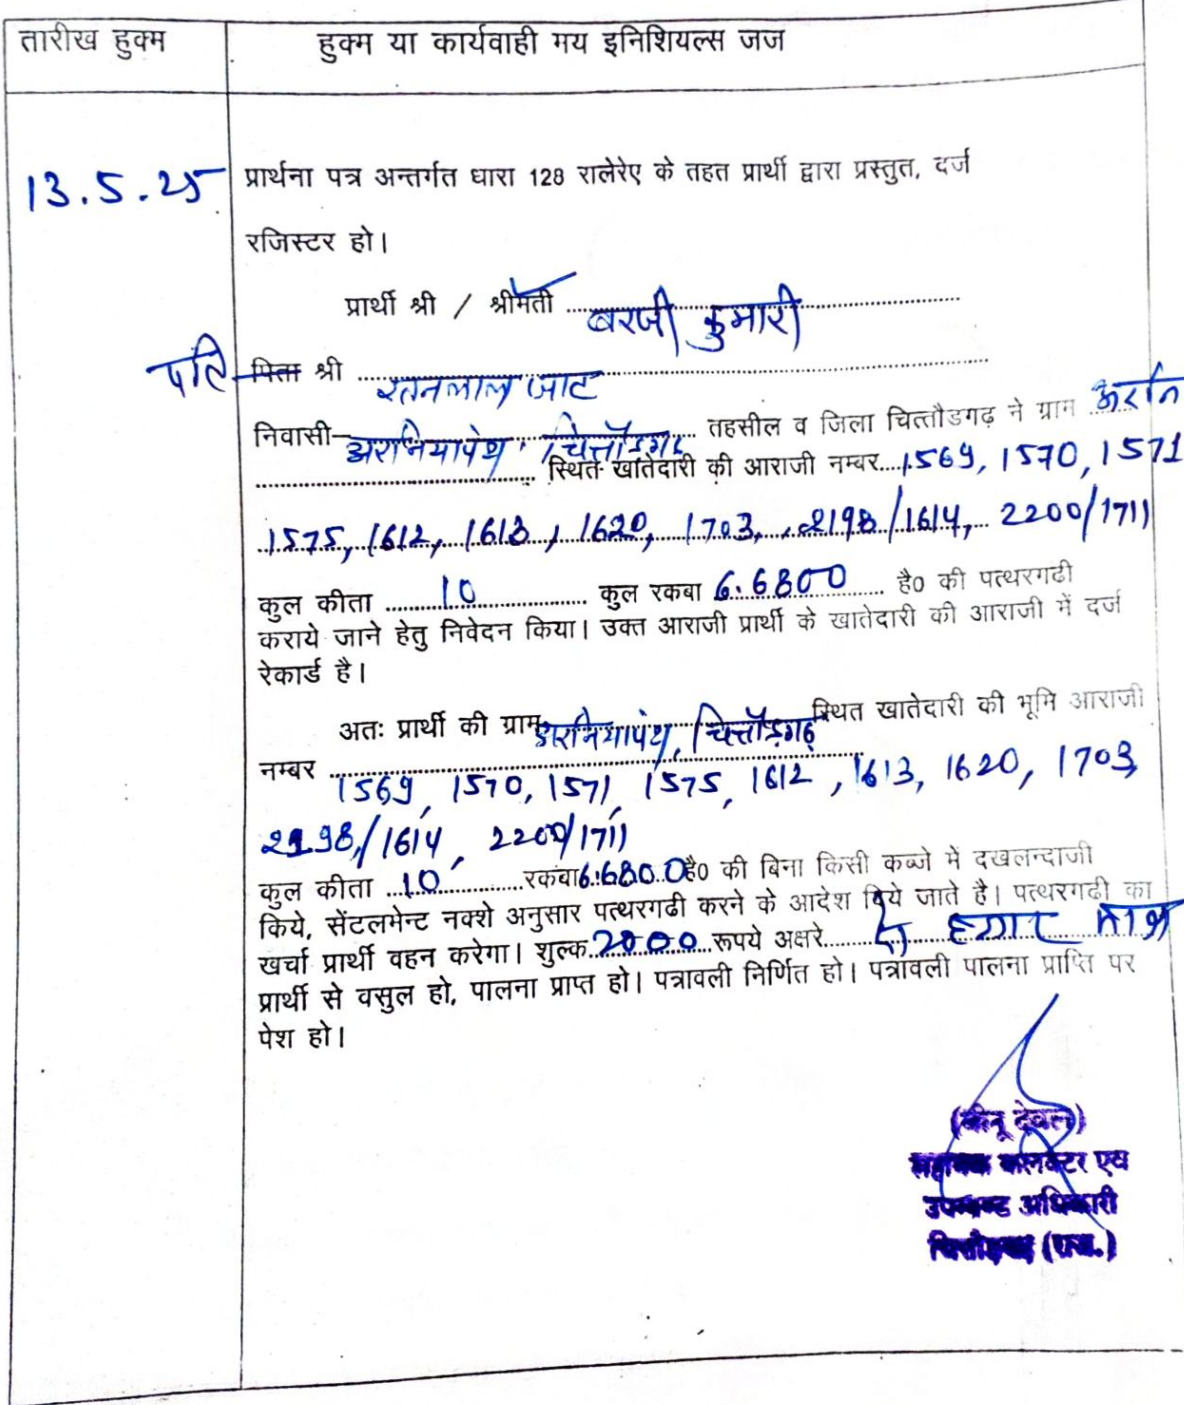 तारीख हुक्म
हुक्म या कार्यवाही मय इनिशियल्स जज
13.5.25
प्रार्थना पत्र अन्तर्गत धारा 128 रालेरेए के तहत प्रार्थी द्वारा प्रस्तुत, दर्ज
रजिस्टर हो।
प्रार्थी श्री / श्रीमती बरजी कुमारी
पति पिता श्री रतनलाल जाट
निवासी अरनियापंथ, चित्तौड़गढ़ तहसील व जिला चित्तौडगढ़ ने ग्राम
स्थित खातेदारी की आराजी नम्बर 1569, 1570, 1571
1575, 1612, 1613, 1620, 1703, 2198/1614, 2200/1711
कुल कीता 10 कुल रकबा 6.6800 है0 की पत्थरगढी
कराये जाने हेतु निवेदन किया। उक्त आराजी प्रार्थी के खातेदारी की आराजी में दर्ज
रेकार्ड है।
अतः प्रार्थी की ग्राम अरनियापंथ, चित्तौड़गढ़ स्थित खातेदारी की भूमि आराजी
नम्बर
1569, 1570, 1571, 1575, 1612, 1613, 1620, 1703,
2198/1614, 2200/1711
कुल कीता 10 रकबा 6.6800 है0 की बिना किसी कब्जे में दखलन्दाजी
किये, सेंटलमेन्ट नक्शे अनुसार पत्थरगढी करने के आदेश दिये जाते है। पत्थरगढी का
खर्चा प्रार्थी वहन करेगा। शुल्क 2000 रूपये अक्षरे दो हजार मात्र
प्रार्थी से वसुल हो, पालना प्राप्त हो। पत्रावली निर्णित हो। पत्रावली पालना प्राप्ति पर
पेश हो।
(बीनू देवल)
सहायक कलक्टर एवं
उपखण्ड अधिकारी
चित्तौड़गढ़ (राज.)